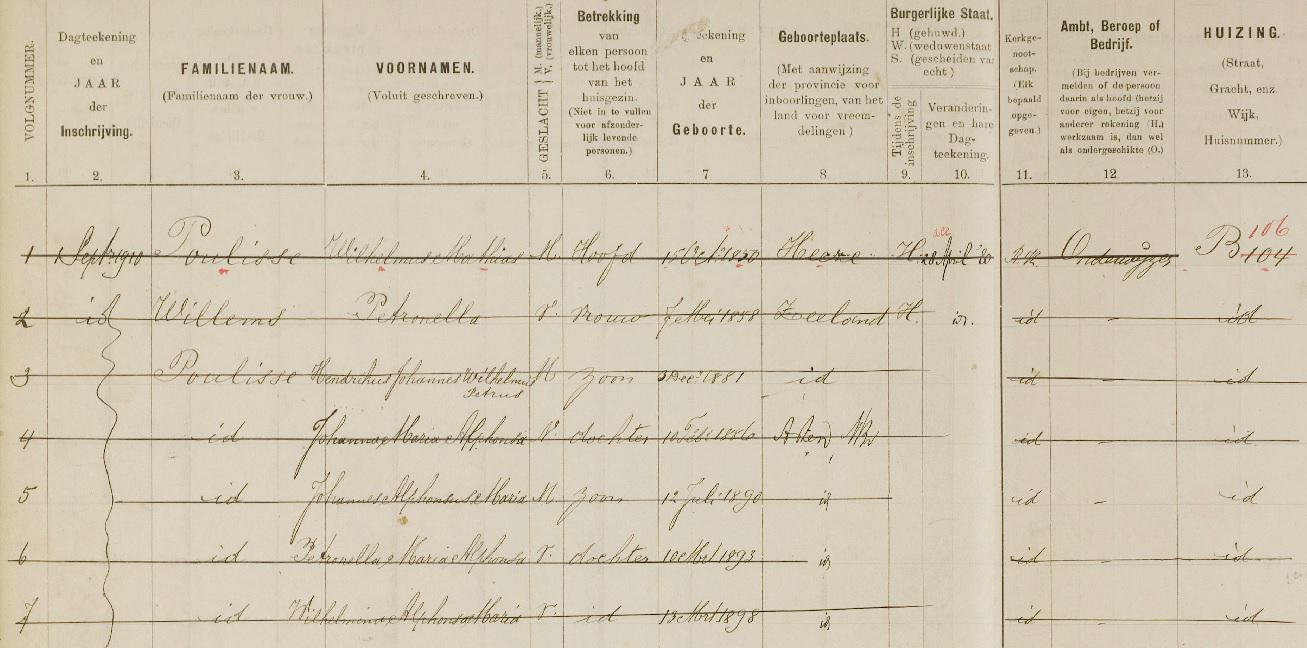 VOLGNUMMER.
Dagteekening
en
JAAR
der
Inschrijving.
FAMILIENAAM.
(Familienaam der vrouw.)
VOORNAMEN.
(Voluit geschreven.)
GESLACHT } M. (mannelijk.) V. (vrouwelijk.)
Betrekking
van
elken persoon
tot het hoofd
van het
huisgezin.
(Niet in te vullen
voor afzonder-
lijk levende
personen.)
ekening
en
JAAR
der
Geboorte.
Geboorteplaats.
(Met aanwijzing
der provincie voor
inboorlingen, van het
land voor vreem-
delingen)
Burgerlijke Staat.
H (gehuwd.)
W. (weduwenstaat
S. (gescheiden van
echt)
Tijdens de
inschrijving
Veranderin-
gen en hare
Dag-
teekening.
Kerkge-
noot-
schap.
(Elk
bepaald
opge-
geven.)
Ambt, Beroep of
Bedrijf.
(Bij bedrijven ver-
melden of de persoon
daarin als hoofd (hetzij
voor eigen, hetzij voor
anderer rekening (H.)
werkzaam is, dan wel
als ondergeschikte (O.)
HUIZING.
(Straat,
Gracht, enz.
Wijk,
Huisnummer.)
1. 2. 3. 4. 5. 6. 7 8. 9. 10. 11. 12. 13.
106
1 1 Sept 1910 Poulisse Wilhelmus Mathias M. Hoofd 15 Oct 1850 Heeze H. 28 April 80 R.K. Onderwijzer B 104
2 id Willems Petronella V. vrouw 7 Mei 1858 Zeeland H. id. id - id
3 Poulisse Hendrikus Johannes Wilhelmus M zoon 3 Dec. 1881 id id - id
Petrus
4 id Johanna Maria Alphonsa V. dochter 10 Feb 1886 Asten NBr id - id
5 id Johannes Alphonsus Maria M zoon 12 Juli 1890 id id - id
6 id Petronella Maria Alphonsa V. dochter 10 Mrt 1893 id id - id
7 id Wilhelmina Alphonsa Maria V. id 13 Mrt 1898 id id - id